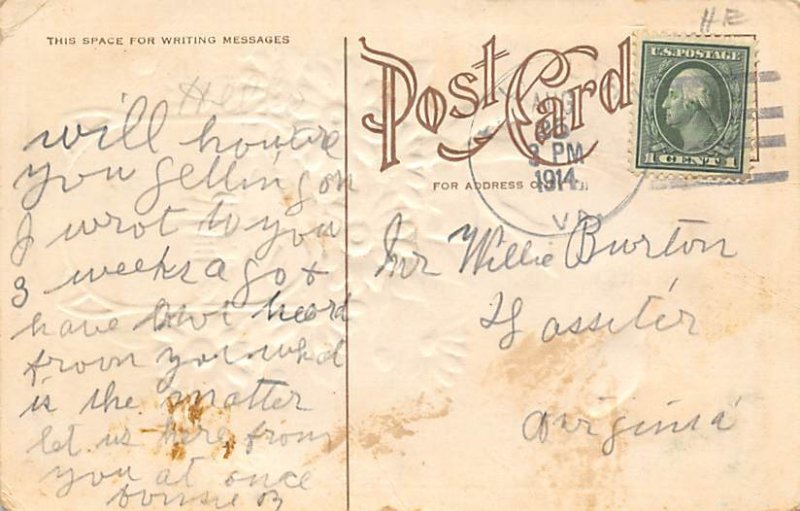 THIS SPACE FOR WRITING MESSAGES
Hello
will how are
you gettin on
I wrot to you
3 weeks ago &
have heord
from you what
is the matter
let us here from
you at once
B
Post Card
FOR ADDRESS ONLY
AUG
3 PM
1914
VA.
U.S. POSTAGE
1 CENT 1
HE
Mr Willie Burton
Lasseter
Virginia